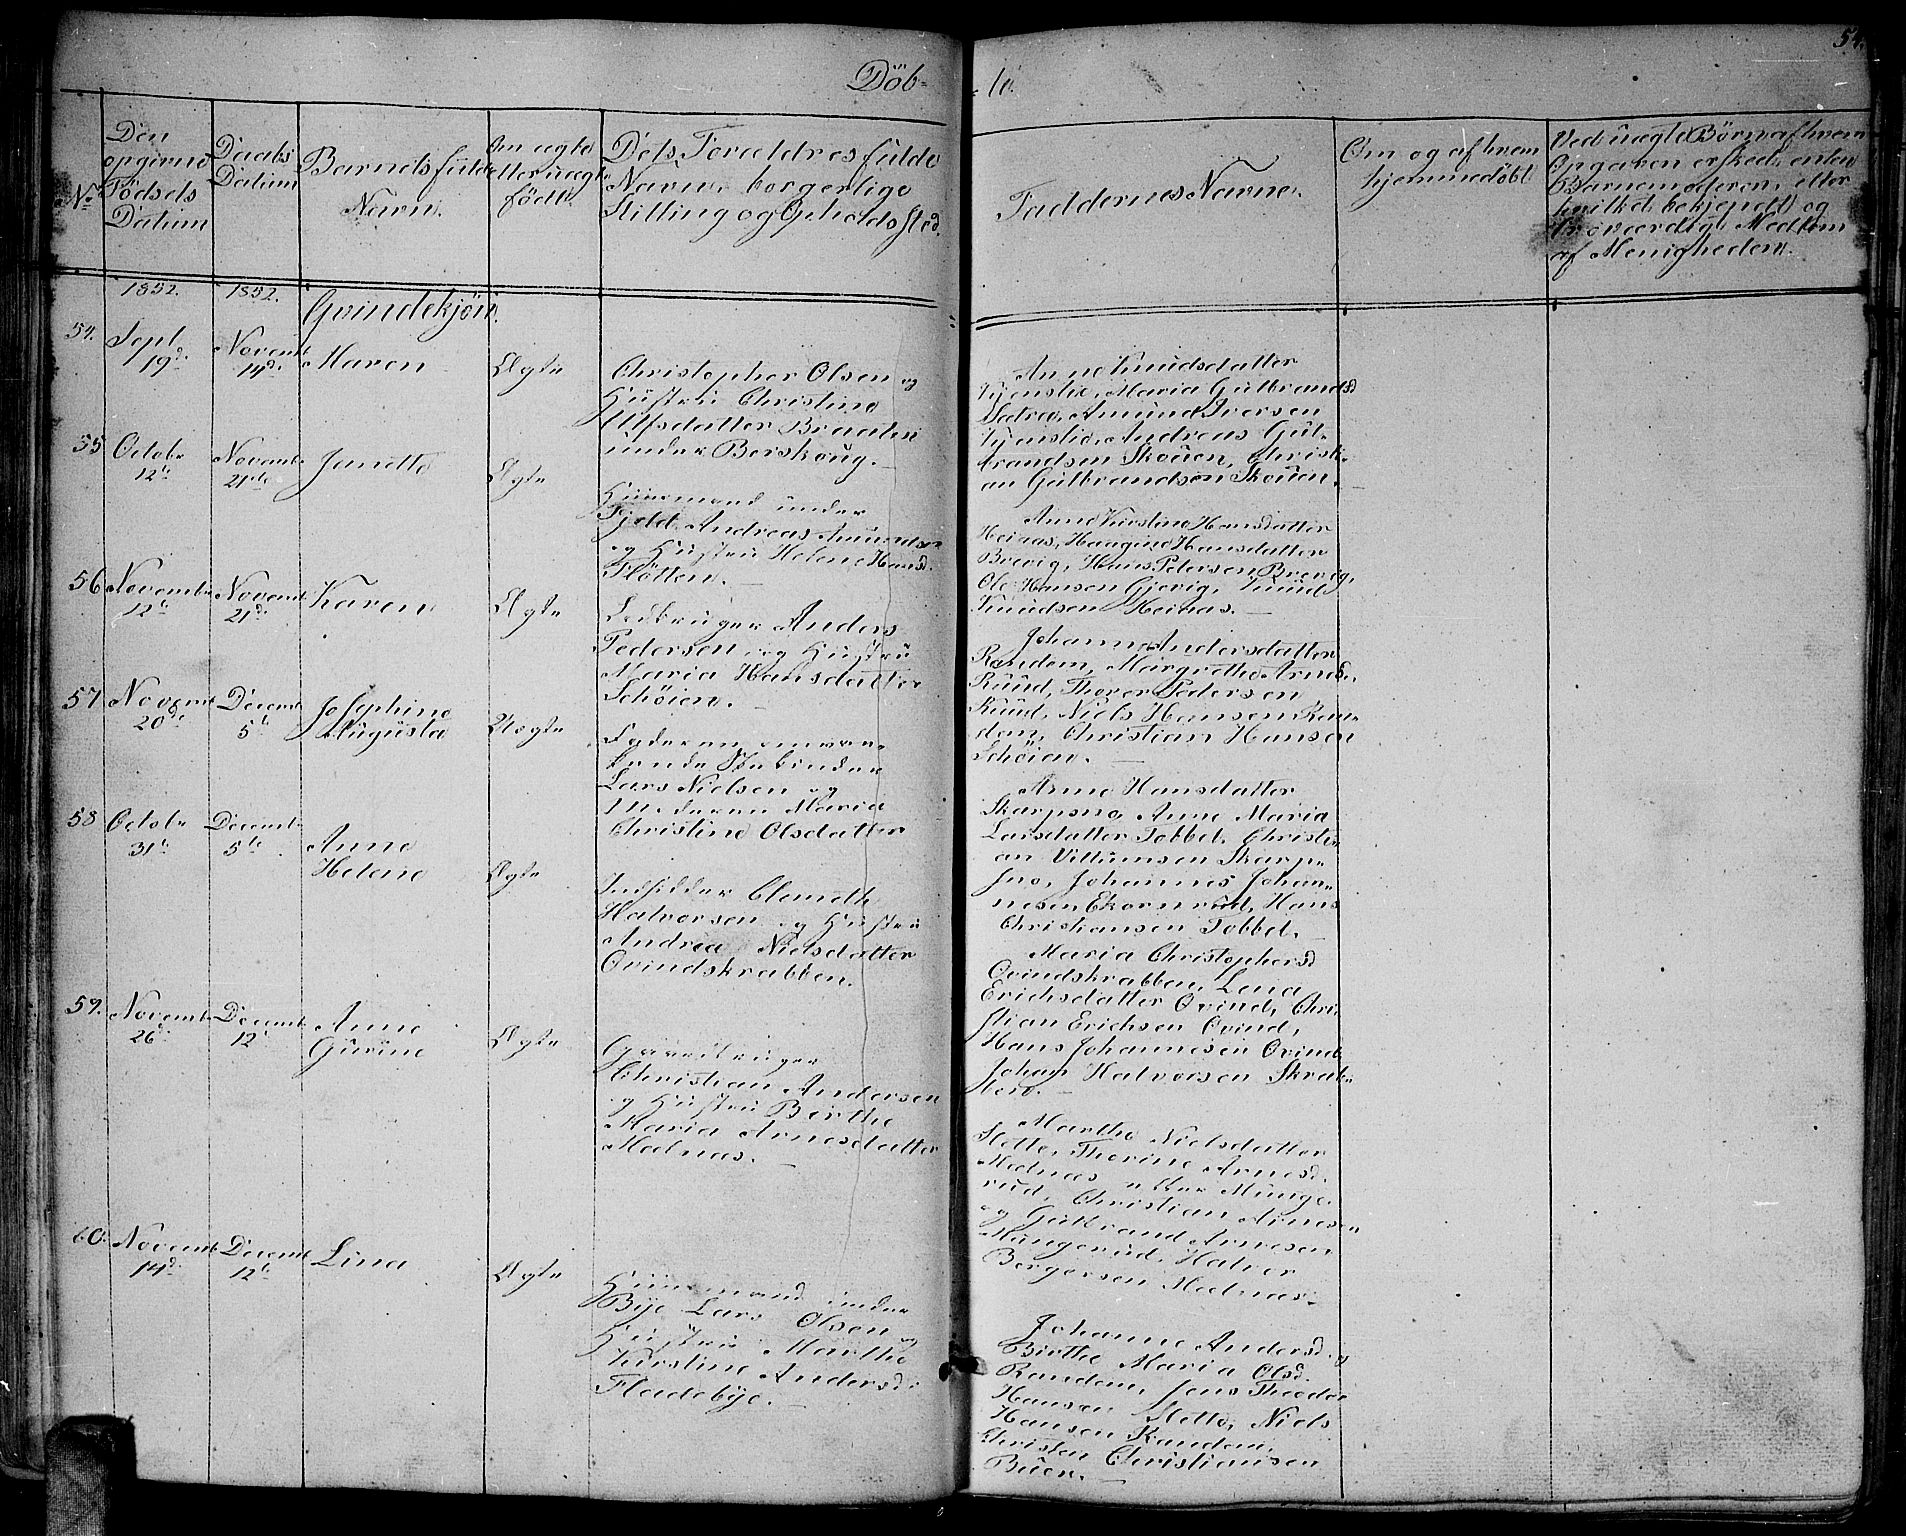 Döb-
te.
54.
No
Den
opgivne
Födsels
Datum
Daabs
Datum
Barnets fulde
Navn.
Om ægte
eller uægte
födt.
Dets Forældres fulde
Navn, borgerlige
Stilling og Opholds Sted.
Faddernes Navne.
Om og af hvem
hjemmedöbt
Ved uægte Börn af hvem
Opgaven er skeet, enten
Barnemoderen, eller
hvilket bekjendt og
troværdigt Medlem
af Menigheden.
1852.
1852.
Qvindekjön.
54.
Sept.
19d.
Novemb.
14d.
Maren
Ægte
Christopher Olsen og
Hustru Christine
Ulfsdatter Braaten
under Berskoug.
Anne Knudsdatter
Tjenslie, Maria Gulbrandsd
Sætra, Amund Iversen
Tjenslie, Andreas Gul-
brandsen Skouen, Christi-
an Gulbrandsen Skouen.
55
Octob.
12te
Novemb.
21de
Janette
Ægte
Huusmand under
Fjeld Andreas Amundsen
og Hustru Helene Hansd.
Fløtten.
Anne Kirstine Hansdatter
Heinas, Haagine Hansdatter
Brevig, Hans Petersen Brevig,
Ole Hansen Gjevig, Knud
Knudsen Heinas.
56
Novemb.
12te
Novemb.
21d.
Karen
Ægte
Leibruger Anders
Pedersen og Hustru
Maria Hansdatter
Schöien.
Johanne Andersdatter
Randem, Margrethe Arnesd.
Ruud, Thorer Pedersen
Ruud, Niels Hansen Ran-
dem, Christian Hansen
Schöien.
57
Novemb
20de
Decemb
5te
Josephine
Augusta
Uægte
Faderen omvan-
Lars Nielsen og
Moderen Maria
Christine Olsdatter
Anne Hansdatter
Skarpsno, Anne Maria
Larsdatter Tobbel, Christi-
an Villumsen Skarp-
sno, Johannes Johan-
nesen Ekornrud, Hans
Christiansen Tobbel.
58
Octob.
31te
Decemb.
5te
Anne
Helene
Ægte
Indsidder Clemeth
Halvorsen og Hustru
Andrea Nielsdatter
Ovindskrabben.
Maria Christophersd
Ovindskrabben, Lena
Erichsdatter Ovind, Chri-
stian Erichsen Ovind,
Hans Johannesen Ovind
Johan Halvorsen Skrab-
59.
Novemb.
26d.
Decemb.
12te
Anne
Gurine
Ægte
Gaardbruger
Christian Andersen
og Hustru Birthe
Maria Arnesdatter
Melnæs.
Marthe Nielsdatter
Slette, Thorine Arnesd.
Melnæs eller Munge-
rud, Christian Arnesen
og Gulbrand Arnesen
Mungerud, Halvor
Bergersen Melnæs.
60.
Novemb.
14d.
Decemb
12te
Lina
Ægte
Huusmand under
Bije Lars Olsen og
Hustru Marthe
Kirstine Andersd.
Fladebye.
Johanne Andersd. og
Birthe Maria Olsd.
Randem, Jens Theodor
Hansen Slette, Niels
Hansen Randem,
Christen Christiansen
Buer.